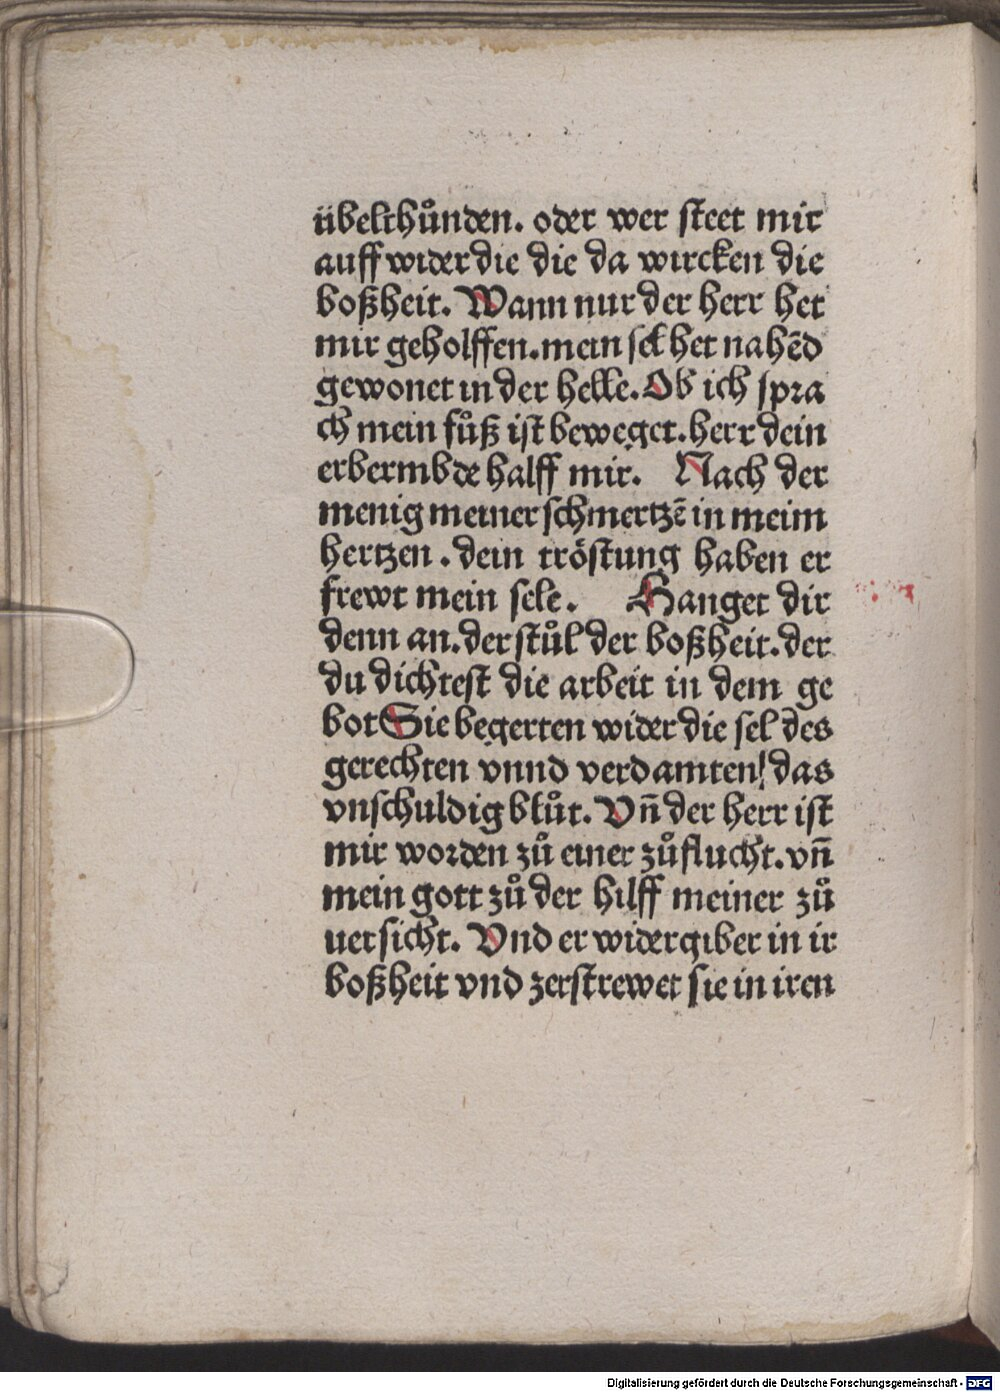 übelthůnden. oder wer steet mir
auff wider die die da wircken die
boßheit. Wann nur der herr het
mir geholffen. mein sel het nahēd
gewonet in der helle. Ob ich spra
ch mein fůß ist beweget. herr dein
erbermbde halff mir. Nach der
menig meiner schmertzē in meim
hertzen. dein tröstung haben er
frewt mein sele. Hanget dir
denn an. der stůl der boßheit. der
du dichtest die arbeit in dem ge
bot Sie begerten wider die sel des
gerechten vnnd verdamten! das
vnschuldig blůt. Vn̄ der herr ist
mir worden zů einer zůflucht. vn̄
mein gott zů der hilff meiner zů
uersicht. Vnd er widergiber in ir
boßheit vnd zerstrewet sie in iren
Digitalisierung gefördert durch die Deutsche Forschungsgemeinschaft - DFG